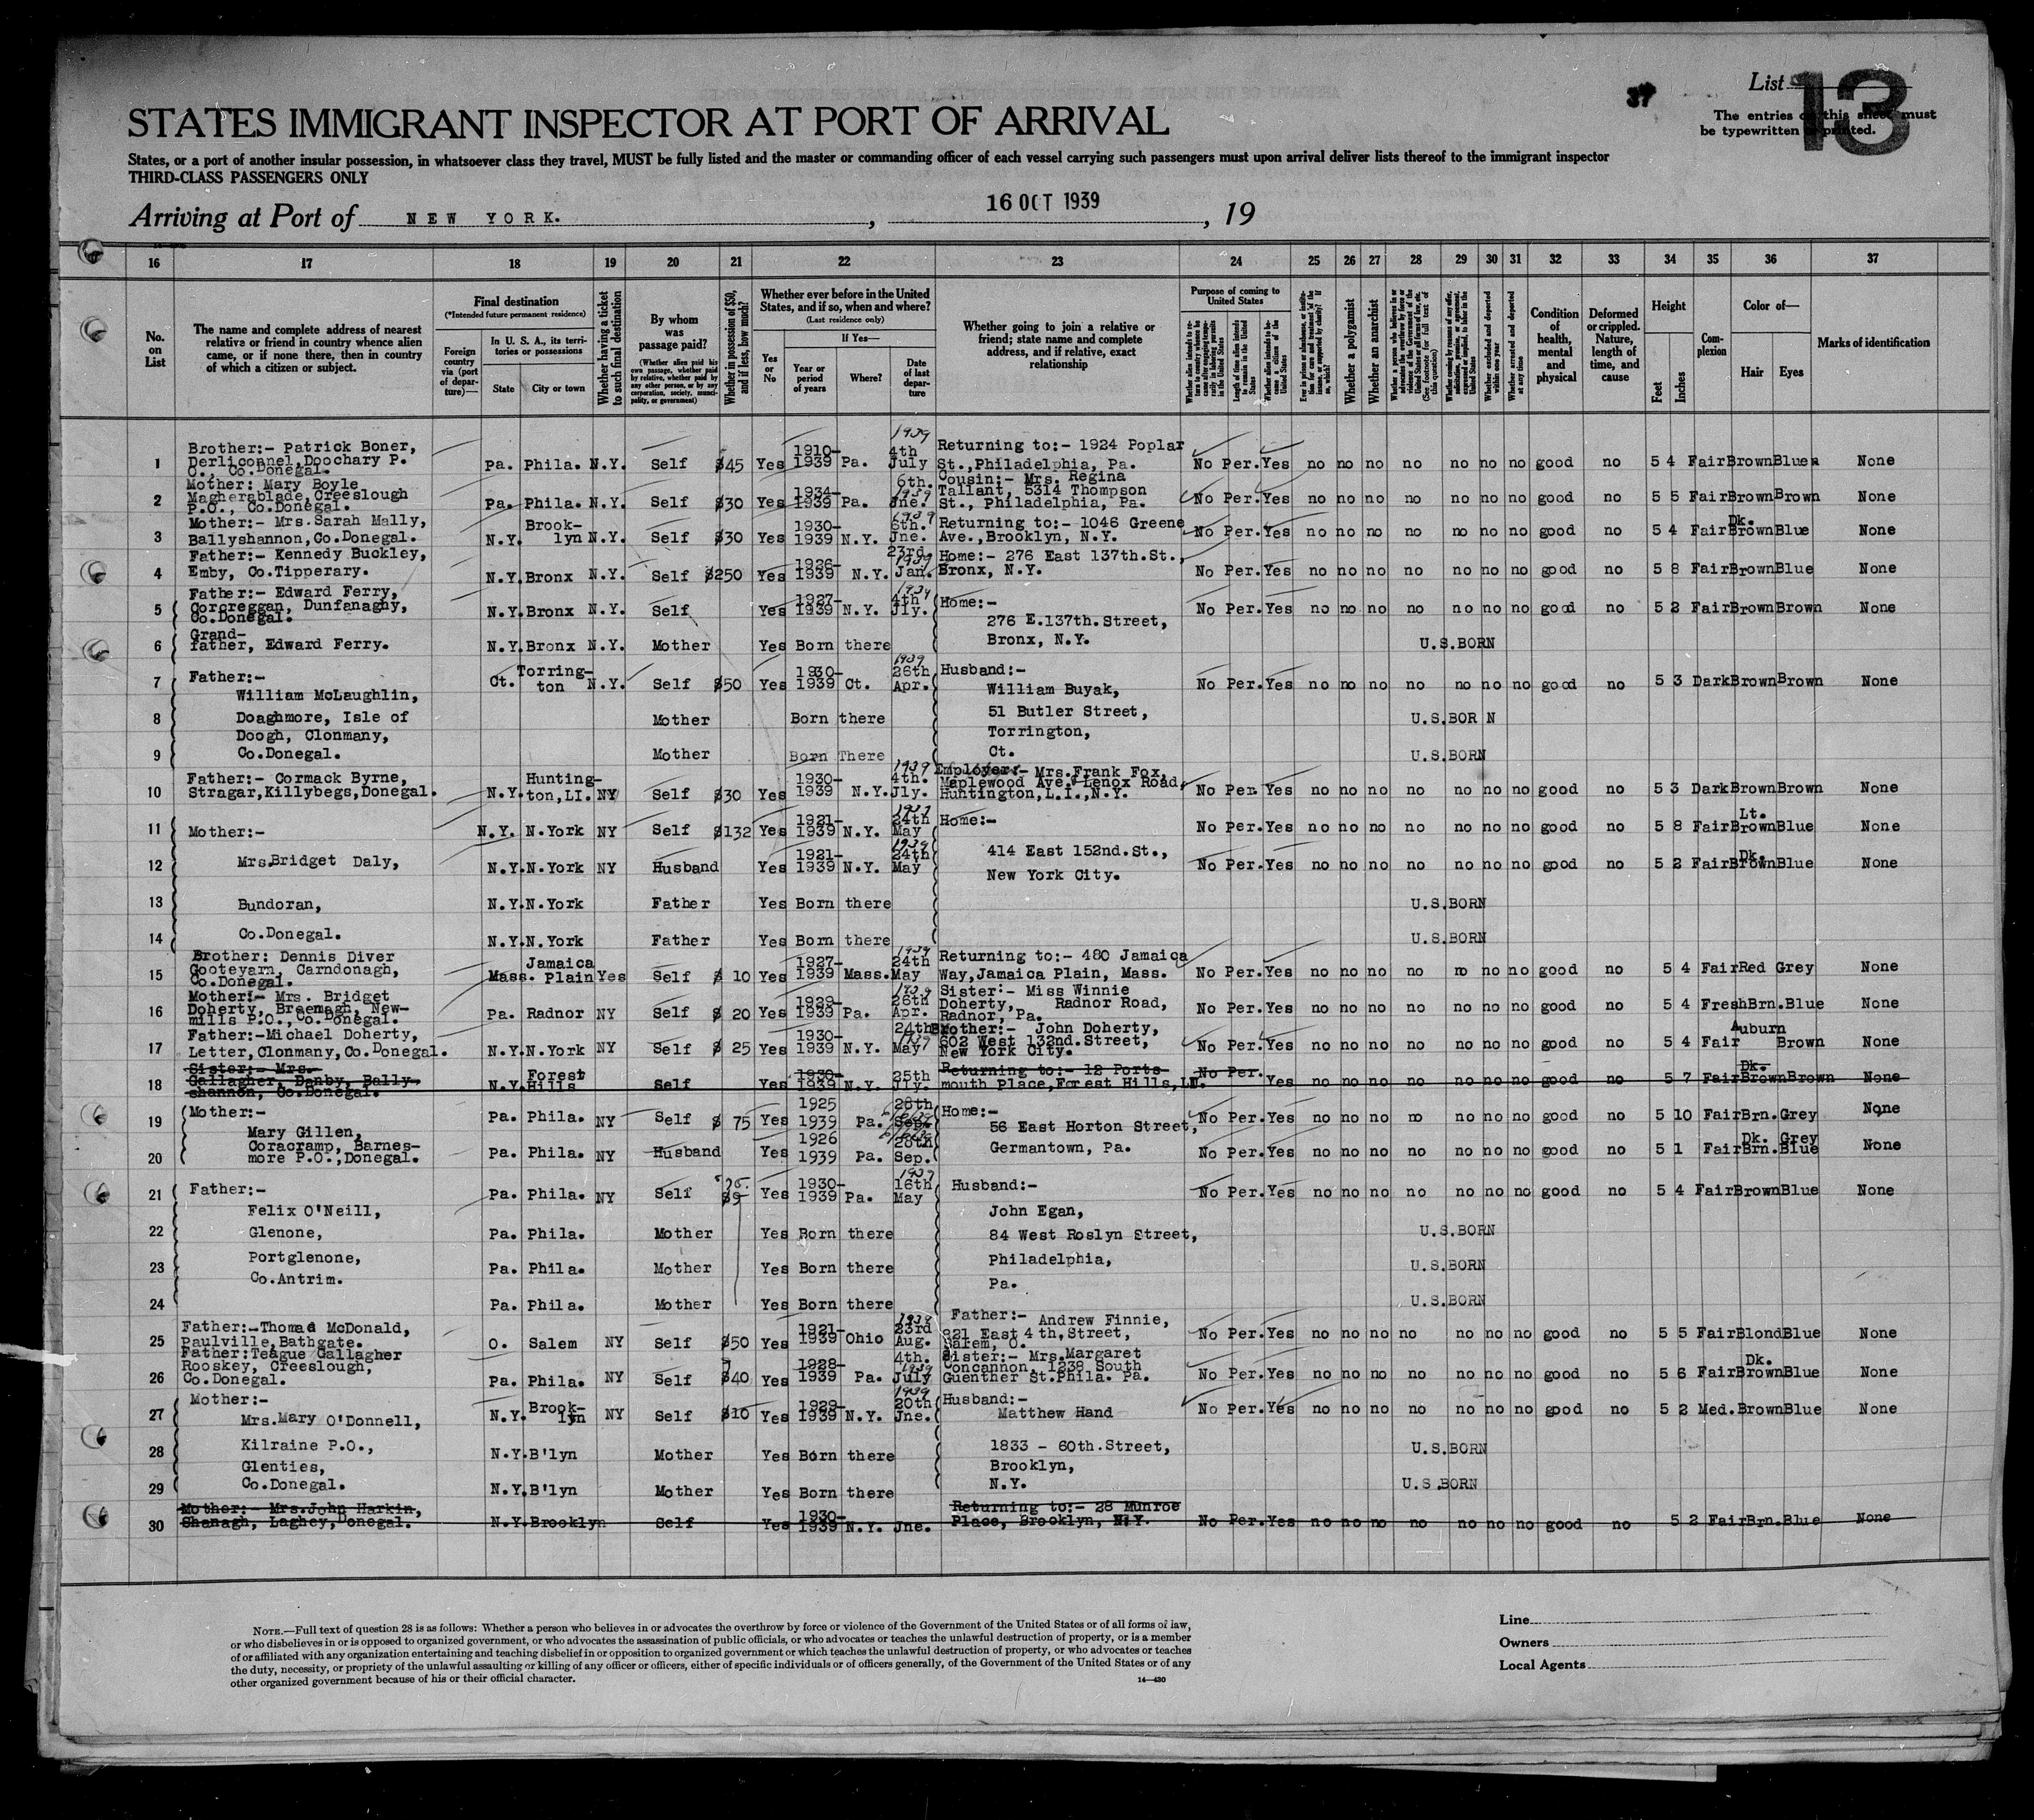 List 13
37
The entries on this sheet must
be typewritten or printed.
STATES IMMIGRANT INSPECTOR AT PORT OF ARRIVAL
States, or a port of another insular possession, in whatsoever class they travel, MUST be fully listed and the master or commanding officer of each vessel carrying such passengers must upon arrival deliver lists thereof to the immigrant inspector
THIRD-CLASS PASSENGERS ONLY
Arriving at Port of NEW YORK. , 16 OCT 1939 , 19
16 17 18 19 20 21 22 23 24 25 26 27 28 29 30 31 32 33 34 35 36 37
No. on List
The name and complete address of nearest relative or friend in country whence alien came, or if none there, then in country of which a citizen or subject.
Final destination
(*Intended future permanent residence)
Foreign country via (port of departure)—
In U. S. A., its territories or possessions
State
City or town
Whether having a ticket to such final destination
By whom was passage paid?
(Whether alien paid his own passage, whether paid by relative, whether paid by any other person, or by any corporation, society, municipality, or government)
Whether in possession of $50, and if less, how much?
Whether ever before in the United States, and if so, when and where?
(Last residence only)
Yes or No
If Yes—
Year or period of years
Where?
Date of last departure
Whether going to join a relative or friend; state name and complete address, and if relative, exact relationship
Purpose of coming to United States
Length of time alien intends to remain in the United States
Whether alien intends to become a citizen of the United States
Whether a polygamist
Whether an anarchist
Whether excluded and deported within one year
Whether arrested and deported at any time
Condition of health, mental and physical
Deformed or crippled. Nature, length of time, and cause
Height
Feet
Inches
Complexion
Color of—
Hair
Eyes
Marks of identification
1 Brother:- Patrick Boner, Derliconnel, Doochary P. O., Co.Donegal. Pa. Phila. N.Y. Self $45 Yes 1910-1939 Pa. 4th July 1939 Returning to:- 1924 Poplar St.,Philadelphia, Pa. No Per. Yes no no no no no no no good no 5 4 Fair Brown Blue None
2 Mother: Mary Boyle Magherablade, Creeslough P.O., Co.Donegal. Pa. Phila. N.Y. Self $30 Yes 1934-1939 Pa. 6th. Jne. 1939 Cousin:- Mrs. Regina Tallant, 5314 Thompson St., Philadelphia, Pa. No Per. Yes no no no no no no no good no 5 5 Fair Brown Brown None
3 Mother:- Mrs.Sarah Mally, Ballyshannon, Co.Donegal. N.Y. Brooklyn N.Y. Self $30 Yes 1930-1939 N.Y. 6th. Jne. 1939 Returning to:- 1046 Greene Ave.,Brooklyn, N.Y. No Per. Yes no no no no no no no good no 5 4 Fair Dk. Brown Blue None
4 Father:- Kennedy Buckley, Emby, Co.Tipperary. N.Y. Bronx N.Y. Self $250 Yes 1926-1939 N.Y. 23rd. Jan. 1939 Home:- 276 East 137th.St., Bronx, N.Y. No Per. Yes no no no no no no no good no 5 8 Fair Brown Blue None
5 Father:- Edward Ferry, Corcreggan, Dunfanaghy, Co.Donegal. N.Y. Bronx N.Y. Self Yes 1927-1939 N.Y. 4th Jly. 1939 Home:- 276 E.137th.Street, Bronx, N.Y. No Per. Yes no no no no no no no good no 5 2 Fair Brown Brown None
6 Grand-father, Edward Ferry. N.Y. Bronx N.Y. Mother Yes Born there U.S.BORN
7 Father:- William McLaughlin, Ct. Torrington N.Y. Self $50 Yes 1930-1939 Ct. 26th Apr. 1939 Husband:- William Buyak, No Per. Yes no no no no no no no good no 5 3 Dark Brown Brown None
8 Doaghmore, Isle of Doogh, Clonmany, Mother Born there 51 Butler Street, Torrington, U.S.BOR N
9 Co.Donegal. Mother Born There Ct. U.S.BORN
10 Father:- Cormack Byrne, Stragar,Killybegs,Donegal. N.Y. Huntington,LI. NY Self $30 Yes 1930-1939 N.Y. 4th. Jly. 1939 Employer:- Mrs.Frank Fox, Maplewood Ave.& Lenox Road, Huntington,L.I.,N.Y. No Per. Yes no no no no no no no good no 5 3 Dark Brown Brown None
11 Mother:- N.Y. N.York NY Self $132 Yes 1921-1939 N.Y. 24th May 1939 Home:- No Per. Yes no no no no no no no good no 5 8 Fair Lt. Brown Blue None
12 Mrs.Bridget Daly, N.Y. N.York NY Husband Yes 1921-1939 N.Y. 24th May 1939 414 East 152nd.St., New York City. No Per. Yes no no no no no no no good no 5 2 Fair Dk. Brown Blue None
13 Bundoran, N.Y. N.York Father Yes Born there U.S.BORN
14 Co.Donegal. N.Y. N.York Father Yes Born there U.S.BORN
15 Brother: Dennis Diver Gooteyarn, Carndonagh, Co.Donegal. Mass. Jamaica Plain Yes Self $ 10 Yes 1927-1939 Mass. 24th May 1939 Returning to:- 480 Jamaica Way,Jamaica Plain, Mass. No Per. Yes no no no no no no no good no 5 4 Fair Red Grey None
16 Mother:- Mrs. Bridget Doherty, Breenagh, Newmills P.O., Co.Donegal. Pa. Radnor NY Self $ 20 Yes 1929-1939 Pa. 26th Apr. 1939 Sister:- Miss Winnie Doherty, Radnor Road, Radnor, Pa. No Per. Yes no no no no no no no good no 5 4 Fresh Brn. Blue None
17 Father:-Michael Doherty, Letter, Clonmany, Co.Donegal. N.Y. N.York NY Self $ 25 Yes 1930-1939 N.Y. 24th May 1939 Brother:- John Doherty, 602 West 132nd.Street, New York City. No Per. Yes no no no no no no no good no 5 4 Fair Auburn Brown None
18 Sister:- Mrs. Gallagher, Danby, Ballyshannon, Co.Donegal. N.Y. Forest Hills Self Yes 1930-1939 N.Y. 25th Jly. Returning to:- 12 Portsmouth Place,Forest Hills,LI. No Per. Yes no no no no no no no good no 5 7 Fair Dk. Brown Brown None
19 Mother:- Mary Gillen, Pa. Phila. NY Self $ 75 Yes 1925 1939 Pa. 28th Sept. Home:- 56 East Horton Street, No Per. Yes no no no no no no no good no 5 10 Fair Brn. Grey None
20 Coracramp, Barnesmore P.O.,Donegal. Pa. Phila. NY Husband Yes 1926 1939 Pa. 28th Sep. Germantown, Pa. No Per. Yes no no no no no no no good no 5 1 Fair Dk. Brn. Grey Blue None
21 Father:- Felix O'Neill, Pa. Phila. NY Self $9 Yes 1930-1939 Pa. 16th May 1939 Husband:- John Egan, No Per. Yes no no no no no no no good no 5 4 Fair Brown Blue None
22 Glenone, Pa. Phila. Mother Yes Born there 84 West Roslyn Street, U.S.BORN
23 Portglenone, Co.Antrim. Pa. Phila. Mother Yes Born there Philadelphia, Pa. U.S.BORN
24 Pa. Phila. Mother Yes Born there U.S.BORN
25 Father:-Thomas McDonald, Paulville,Bathgate. O. Salem NY Self $50 Yes 1921-1939 Ohio 23rd Aug. 1938 Father:- Andrew Finnie, 821 East 4th,Street, Salem, O. No Per. Yes no no no no no no no good no 5 5 Fair Blond Blue None
26 Father:Teague Gallagher Rooskey, Creeslough, Co.Donegal. Pa. Phila. NY Self $40 Yes 1928-1939 Pa. 4th. July 1939 Sister:- Mrs.Margaret Concannon, 1238 South Guenther St.Phila. Pa. No Per. Yes no no no no no no no good no 5 6 Fair Dk. Brown Blue None
27 Mother:- Mrs.Mary O'Donnell, N.Y. Brooklyn NY Self $10 Yes 1929-1939 N.Y. 20th Jne. 1939 Husband:- Matthew Hand No Per. Yes no no no no no no no good no 5 2 Med. Brown Blue None
28 Kilraine P.O., Glenties, N.Y. B'lyn Mother Yes Born there 1833 - 60th.Street, Brooklyn, U.S.BORN
29 Co.Donegal. N.Y. B'lyn Mother Yes Born there N.Y. U.S.BORN
30 Mother:- Mrs.John Harkin, Shanagh, Laghey,Donegal. N.Y. Brooklyn Self Yes 1930-1939 N.Y. Jne. Returning to:- 28 Munroe Place, Brooklyn, N.Y. No Per. Yes no no no no no no no good no 5 2 Fair Brn. Blue None
NOTE.—Full text of question 28 is as follows: Whether a person who believes in or advocates the overthrow by force or violence of the Government of the United States or of all forms of law,
or who disbelieves in or is opposed to organized government, or who advocates the assassination of public officials, or who advocates or teaches the unlawful destruction of property, or is a member
of or affiliated with any organization entertaining and teaching disbelief in or opposition to organized government or which teaches the unlawful destruction of property, or who advocates or teaches
the duty, necessity, or propriety of the unlawful assaulting or killing of any officer or officers, either of specific individuals or of officers generally, of the Government of the United States or of any
other organized government because of his or their official character.
14—430
Line
Owners
Local Agents